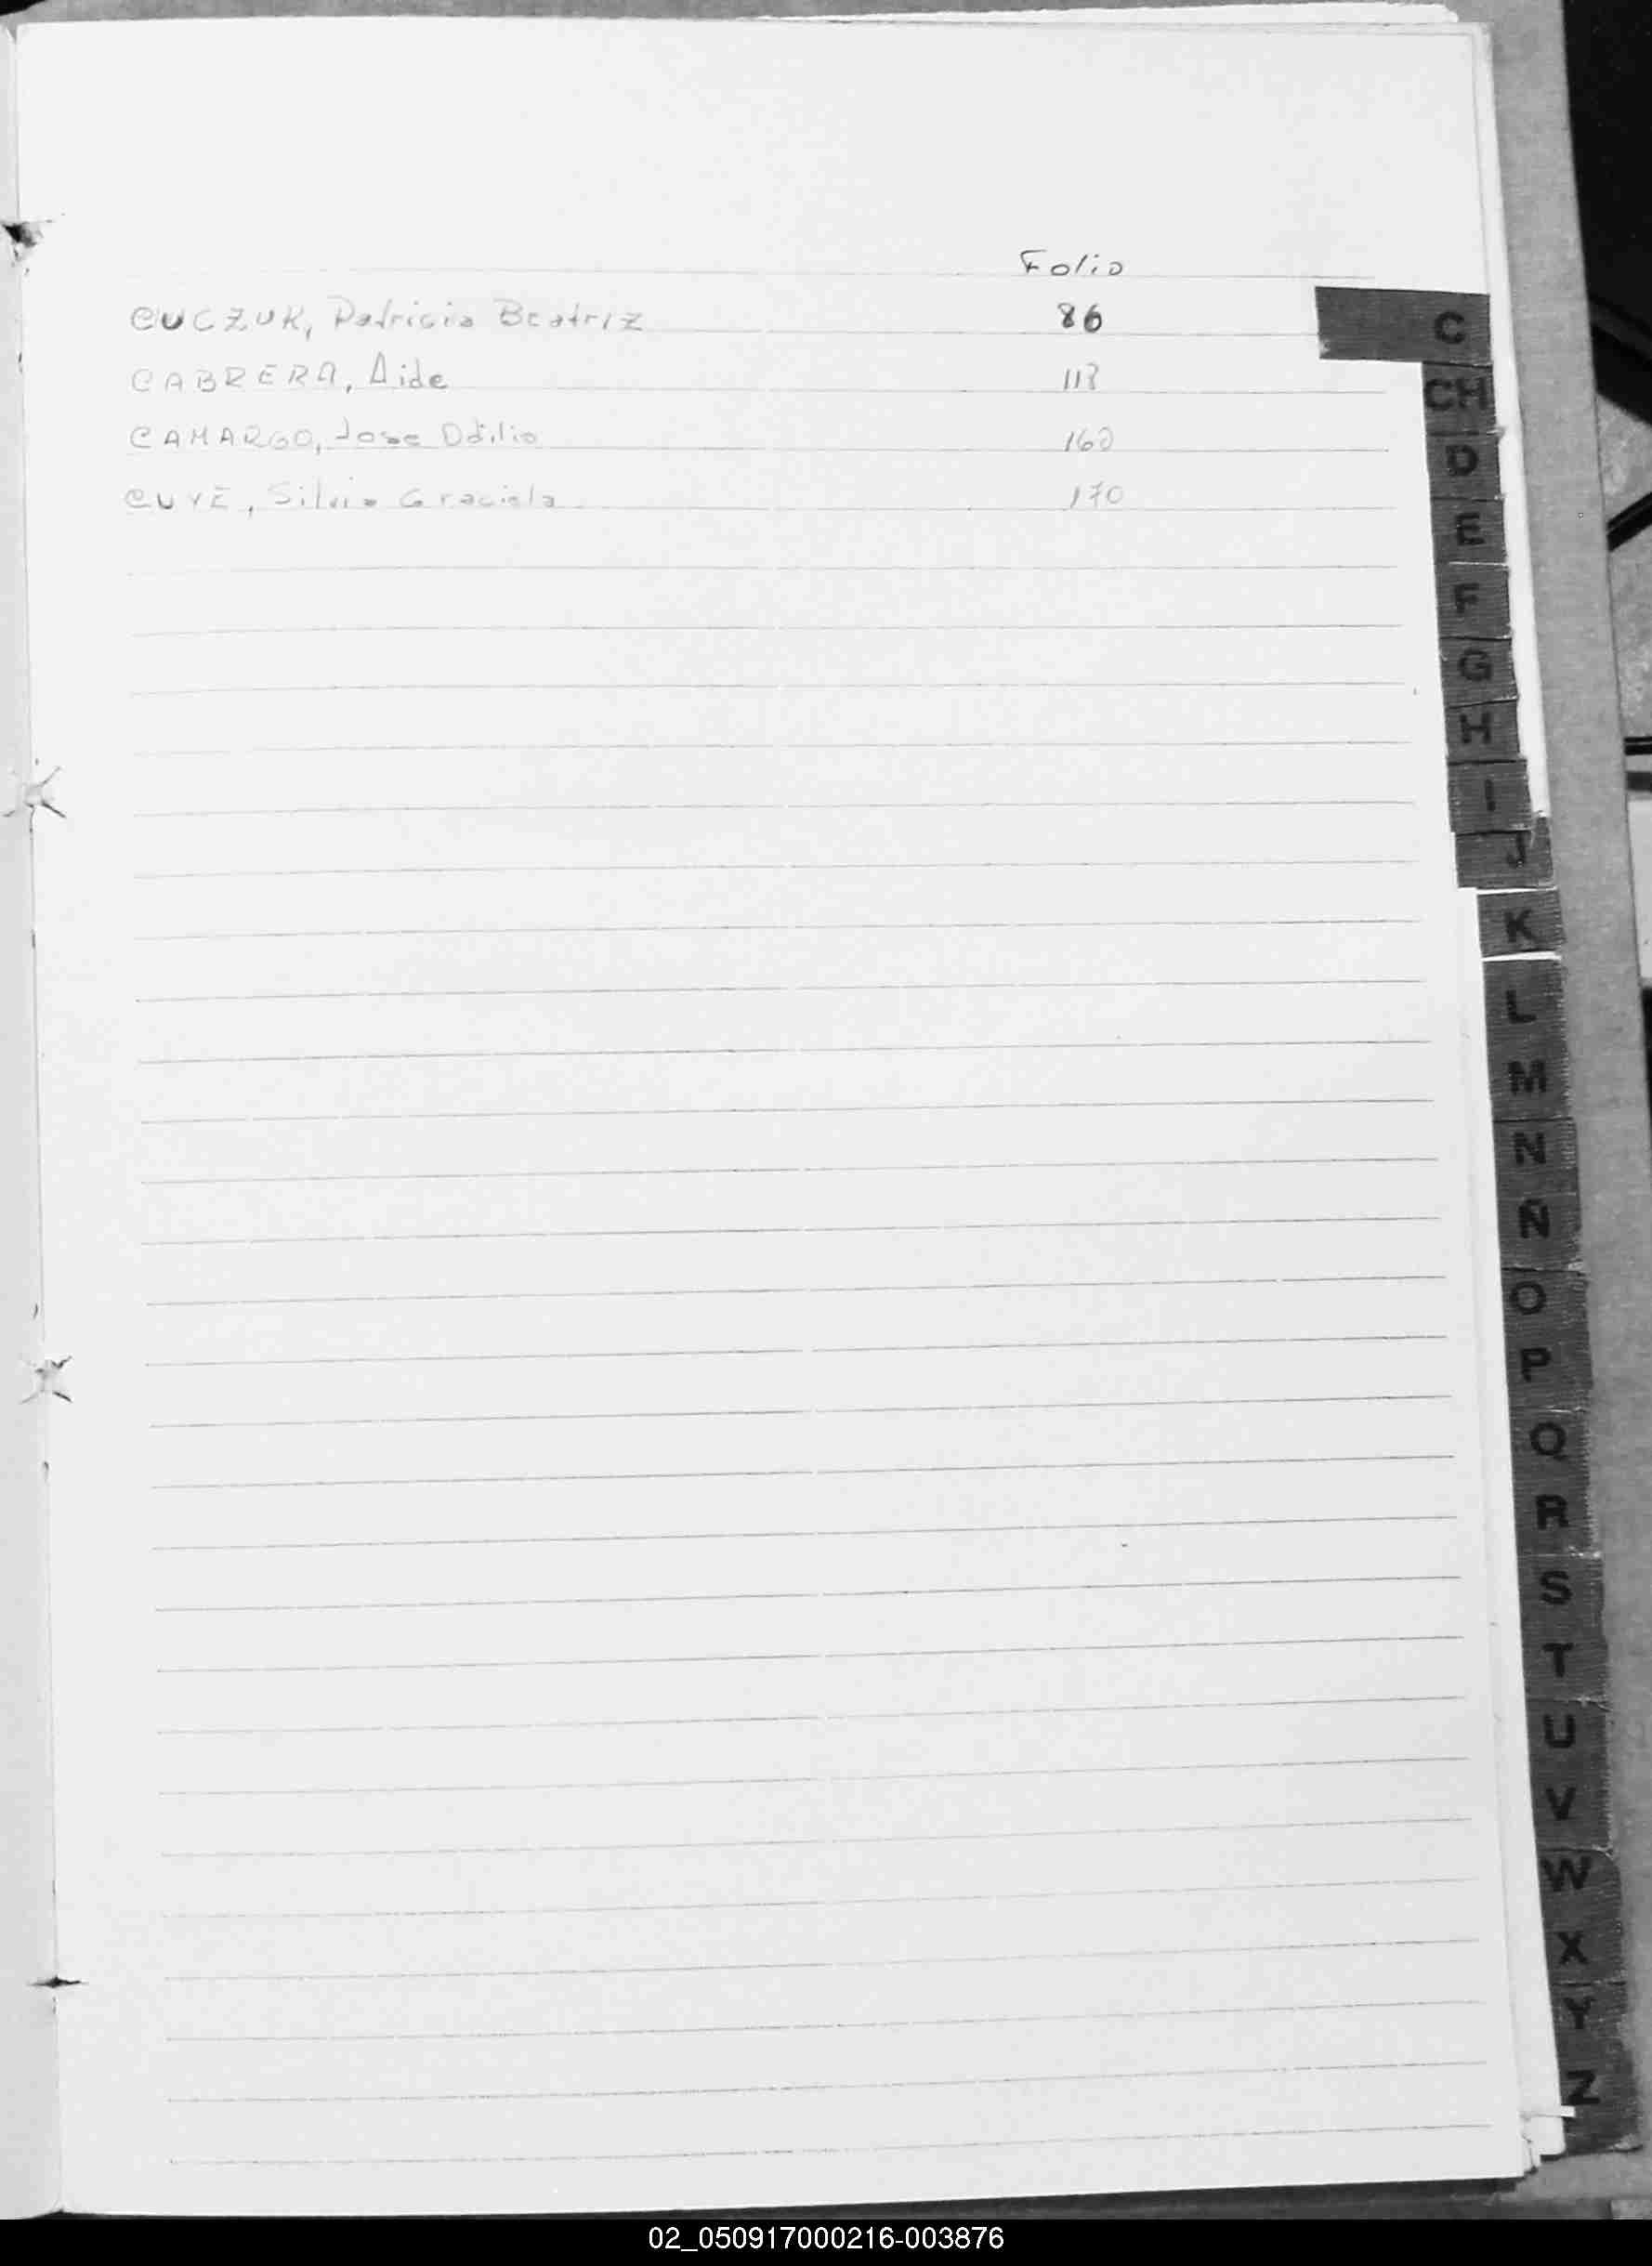 Folio
CUCZUK, Patricia Beatriz 86
CABRERA, Aide 113
CAMARGO, Jose Odilio 160
CUYE, Silvia Graciela 170
C
CH
D
E
F
G
H
I
J
K
L
M
N
Ñ
O
P
Q
R
S
T
U
V
W
X
Y
Z
02_050917000216-003876